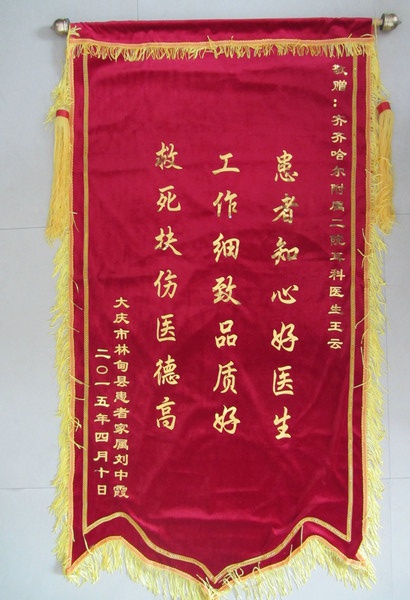 敬赠：齐齐哈尔附属二院耳科医生王云
患者知心好医生
工作细致品质好
救死扶伤医德高
大庆市林甸县患者家属刘中霞
二〇一五年四月十日